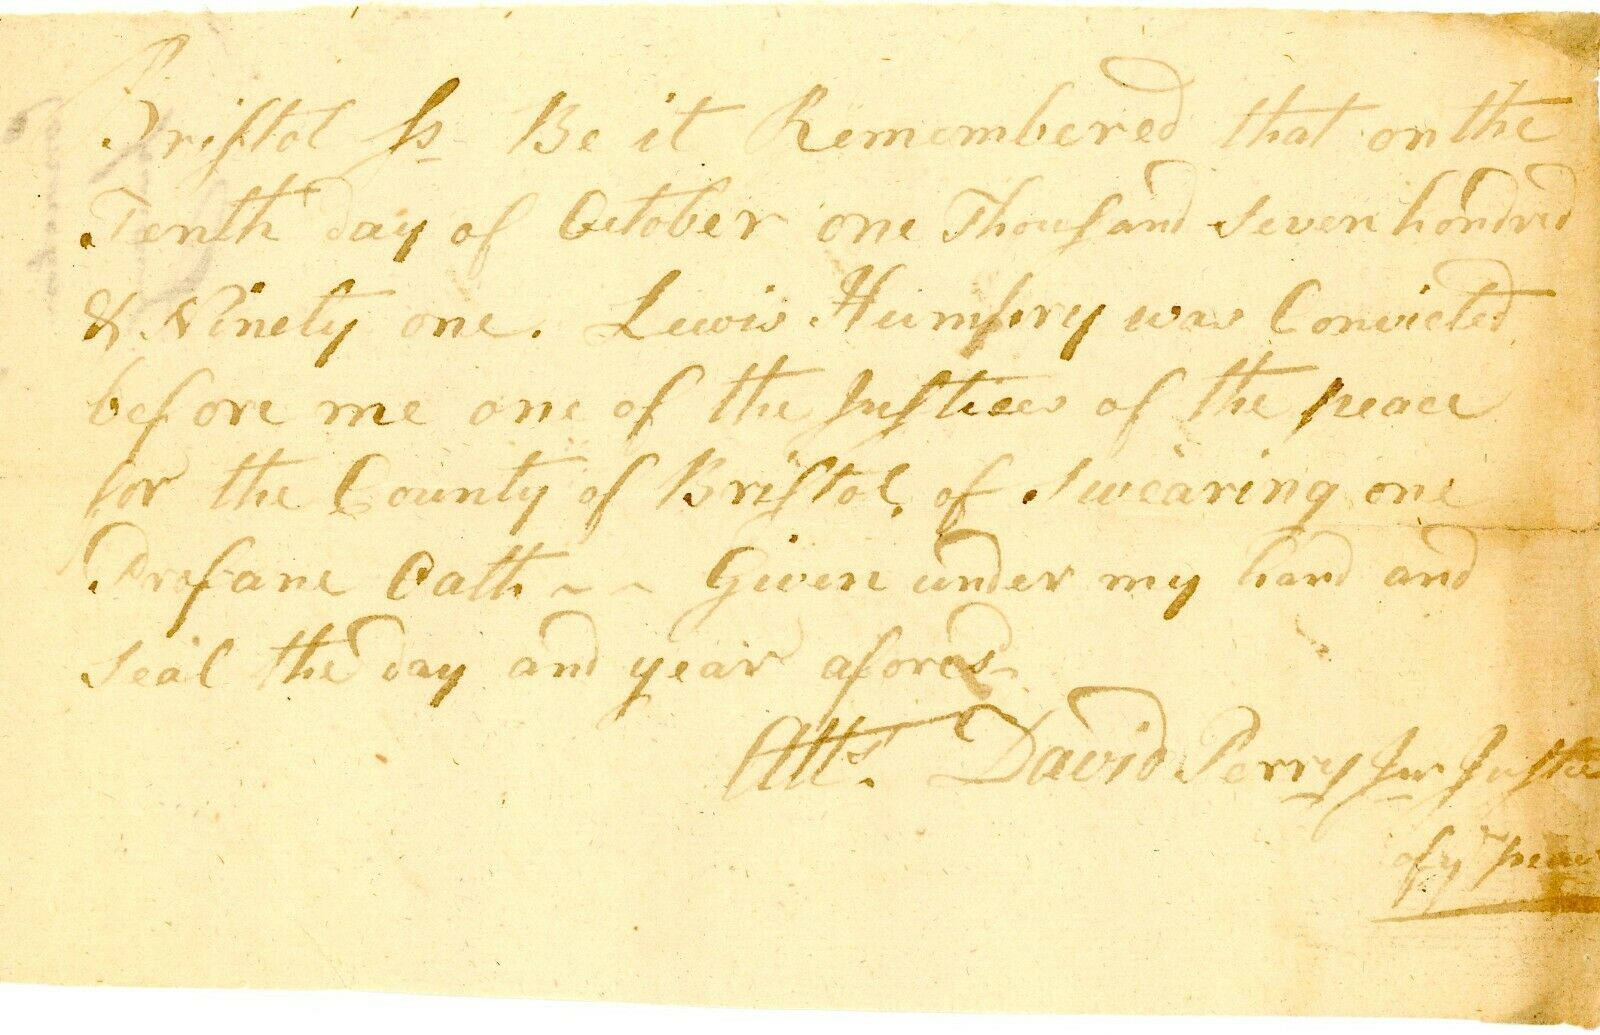 Bristol Ss Be it Remembered that on the
Tenth day of October one Thousand seven hondred
& Ninety one. Lewis Humfry was Convicted
before me one of the Justices of the peace
for the County of Bristol, of Swearing one
Profane Oath ~ ~ Given under my hand and
seal the day and year aforesd
Atts. David Perry Jur Justice
of ye peace